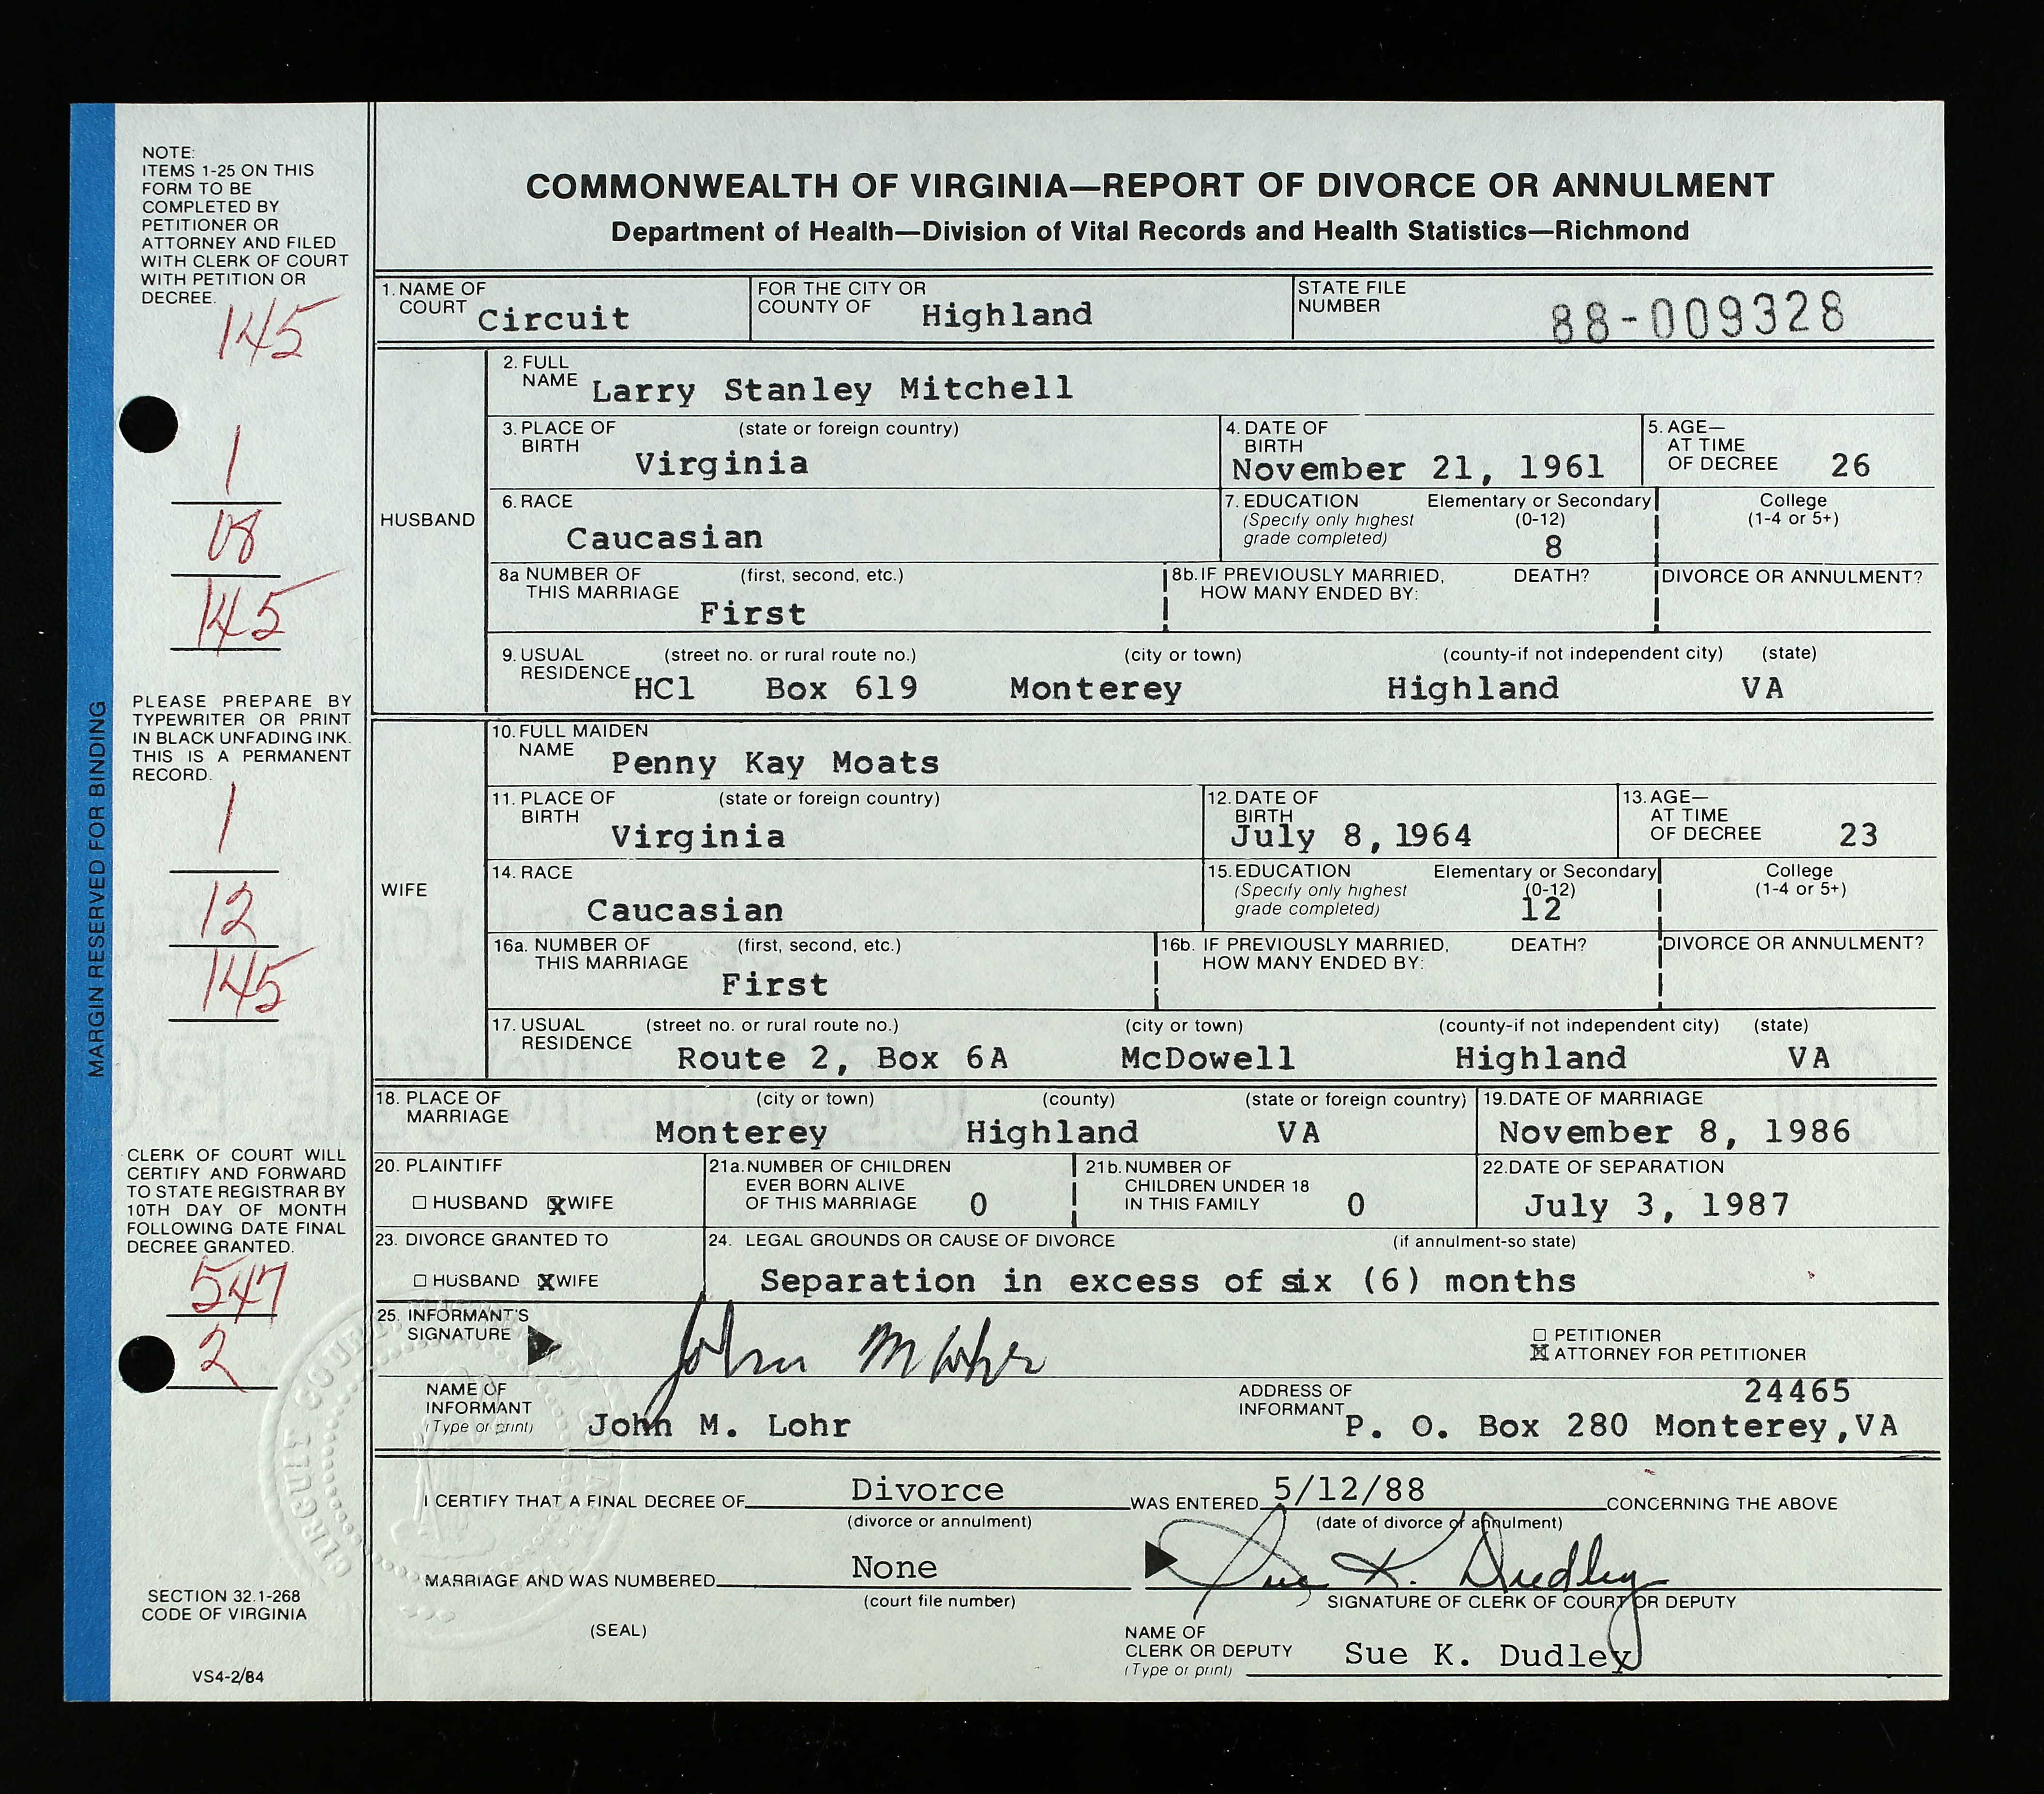 COMMONWEALTH OF VIRGINIA—REPORT OF DIVORCE OR ANNULMENT
Department of Health—Division of Vital Records and Health Statistics—Richmond
NOTE:
ITEMS 1-25 ON THIS
FORM TO BE
COMPLETED BY
PETITIONER OR
ATTORNEY AND FILED
WITH CLERK OF COURT
WITH PETITION OR
DECREE.
145
1
18
145
PLEASE PREPARE BY
TYPEWRITER OR PRINT
IN BLACK UNFADING INK.
THIS IS A PERMANENT
RECORD.
1
12
145
CLERK OF COURT WILL
CERTIFY AND FORWARD
TO STATE REGISTRAR BY
10TH DAY OF MONTH
FOLLOWING DATE FINAL
DECREE GRANTED.
547
2
SECTION 32.1-268
CODE OF VIRGINIA
VS4-2/84
MARGIN RESERVED FOR BINDING
1. NAME OF COURT Circuit
FOR THE CITY OR COUNTY OF Highland
STATE FILE NUMBER 88-009328
HUSBAND
2. FULL NAME Larry Stanley Mitchell
3. PLACE OF BIRTH (state or foreign country) Virginia
4. DATE OF BIRTH November 21, 1961
5. AGE— AT TIME OF DECREE 26
6. RACE Caucasian
7. EDUCATION (Specify only highest grade completed) Elementary or Secondary (0-12) 8
College (1-4 or 5+)
8a NUMBER OF THIS MARRIAGE (first, second, etc.) First
8b. IF PREVIOUSLY MARRIED, HOW MANY ENDED BY: DEATH? DIVORCE OR ANNULMENT?
9. USUAL RESIDENCE (street no. or rural route no.) (city or town) (county-if not independent city) (state)
HC1 Box 619 Monterey Highland VA
WIFE
10. FULL MAIDEN NAME Penny Kay Moats
11. PLACE OF BIRTH (state or foreign country) Virginia
12. DATE OF BIRTH July 8, 1964
13. AGE— AT TIME OF DECREE 23
14. RACE Caucasian
15. EDUCATION (Specify only highest grade completed) Elementary or Secondary (0-12) 12
College (1-4 or 5+)
16a. NUMBER OF THIS MARRIAGE (first, second, etc.) First
16b. IF PREVIOUSLY MARRIED, HOW MANY ENDED BY: DEATH? DIVORCE OR ANNULMENT?
17. USUAL RESIDENCE (street no. or rural route no.) (city or town) (county-if not independent city) (state)
Route 2, Box 6A McDowell Highland VA
18. PLACE OF MARRIAGE (city or town) (county) (state or foreign country)
Monterey Highland VA
19. DATE OF MARRIAGE November 8, 1986
20. PLAINTIFF
☐ HUSBAND ☒ WIFE
21a. NUMBER OF CHILDREN EVER BORN ALIVE OF THIS MARRIAGE 0
21b. NUMBER OF CHILDREN UNDER 18 IN THIS FAMILY 0
22. DATE OF SEPARATION July 3, 1987
23. DIVORCE GRANTED TO
☐ HUSBAND ☒ WIFE
24. LEGAL GROUNDS OR CAUSE OF DIVORCE (if annulment-so state)
Separation in excess of six (6) months
25. INFORMANT'S SIGNATURE John M Lohr
☐ PETITIONER
☒ ATTORNEY FOR PETITIONER
NAME OF INFORMANT (Type or print) John M. Lohr
ADDRESS OF INFORMANT P. O. Box 280 Monterey, VA 24465
I CERTIFY THAT A FINAL DECREE OF Divorce WAS ENTERED 5/12/88 CONCERNING THE ABOVE
(divorce or annulment) (date of divorce or annulment)
MARRIAGE AND WAS NUMBERED None Sue K. Dudley
(court file number) SIGNATURE OF CLERK OF COURT OR DEPUTY
(SEAL)
NAME OF CLERK OR DEPUTY (Type or print) Sue K. Dudley
CIRCUIT COURT